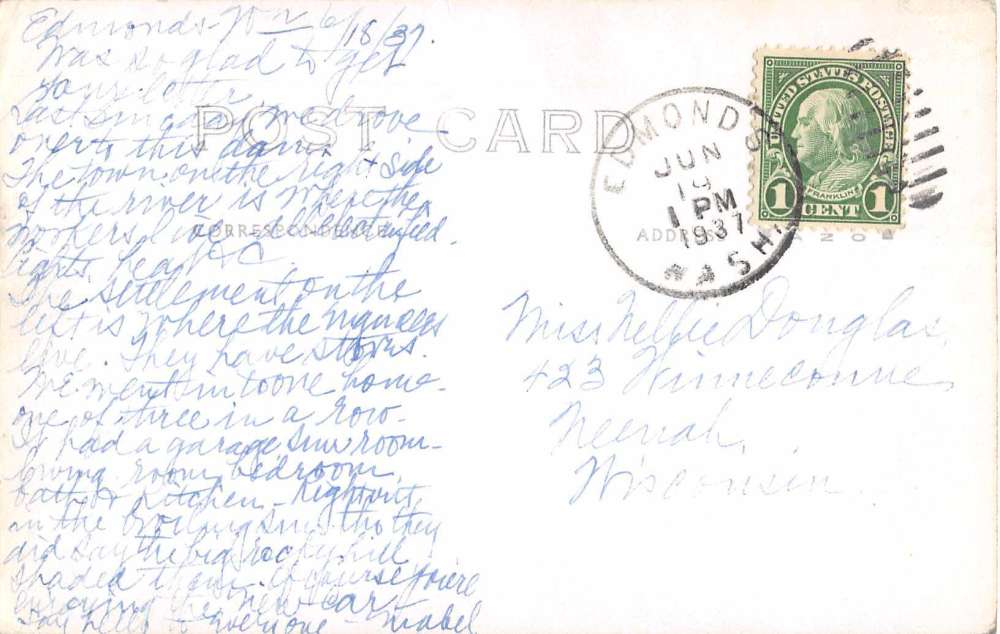 Edmonds - Wn 6/18/37.
Was so glad to get
your letter.
Last Sunday we drove
over to this dam.
The town on the right side
of the river is where the
live - all electrified.
lights, heat &c
The settlement on the
left is where the
live. They have stores.
We went in to one home -
one of three in a row -
It had a garage, sun room -
living room, bedroom,
bath & kitchen - Right out
in the broiling sun tho they
did say the big rocky hill
shaded them. Of course you're
enjoying the new car -
Say hello to everyone - Mabel
POST CARD
CORRESPONDENCE
ADDRESS
EDMONDS
JUN
1 PM
1937
WASH.
UNITED STATES POSTAGE
FRANKLIN
1 CENT 1
Miss Nellie Douglas,
423 Winneconne
Neenah,
Wisconsin.